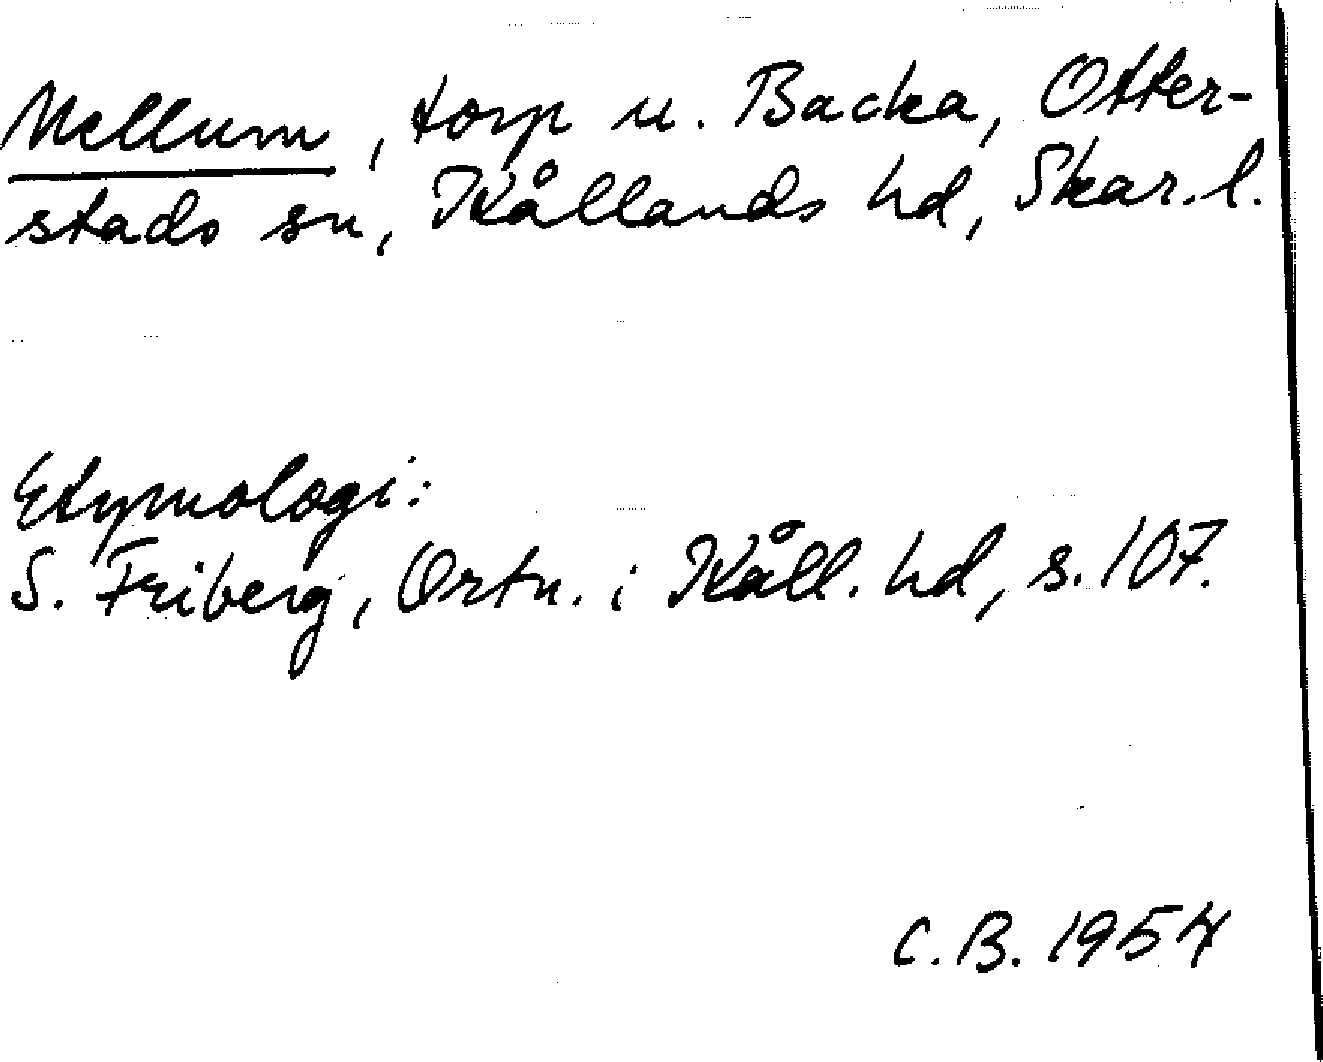 Mellum, torp u. Backa, Otter-
stads sn, Kållands hd, Skar. l.
Etymologi:
S. Friberg, Ortn. i Kåll. hd, s. 107.
C. B. 1954